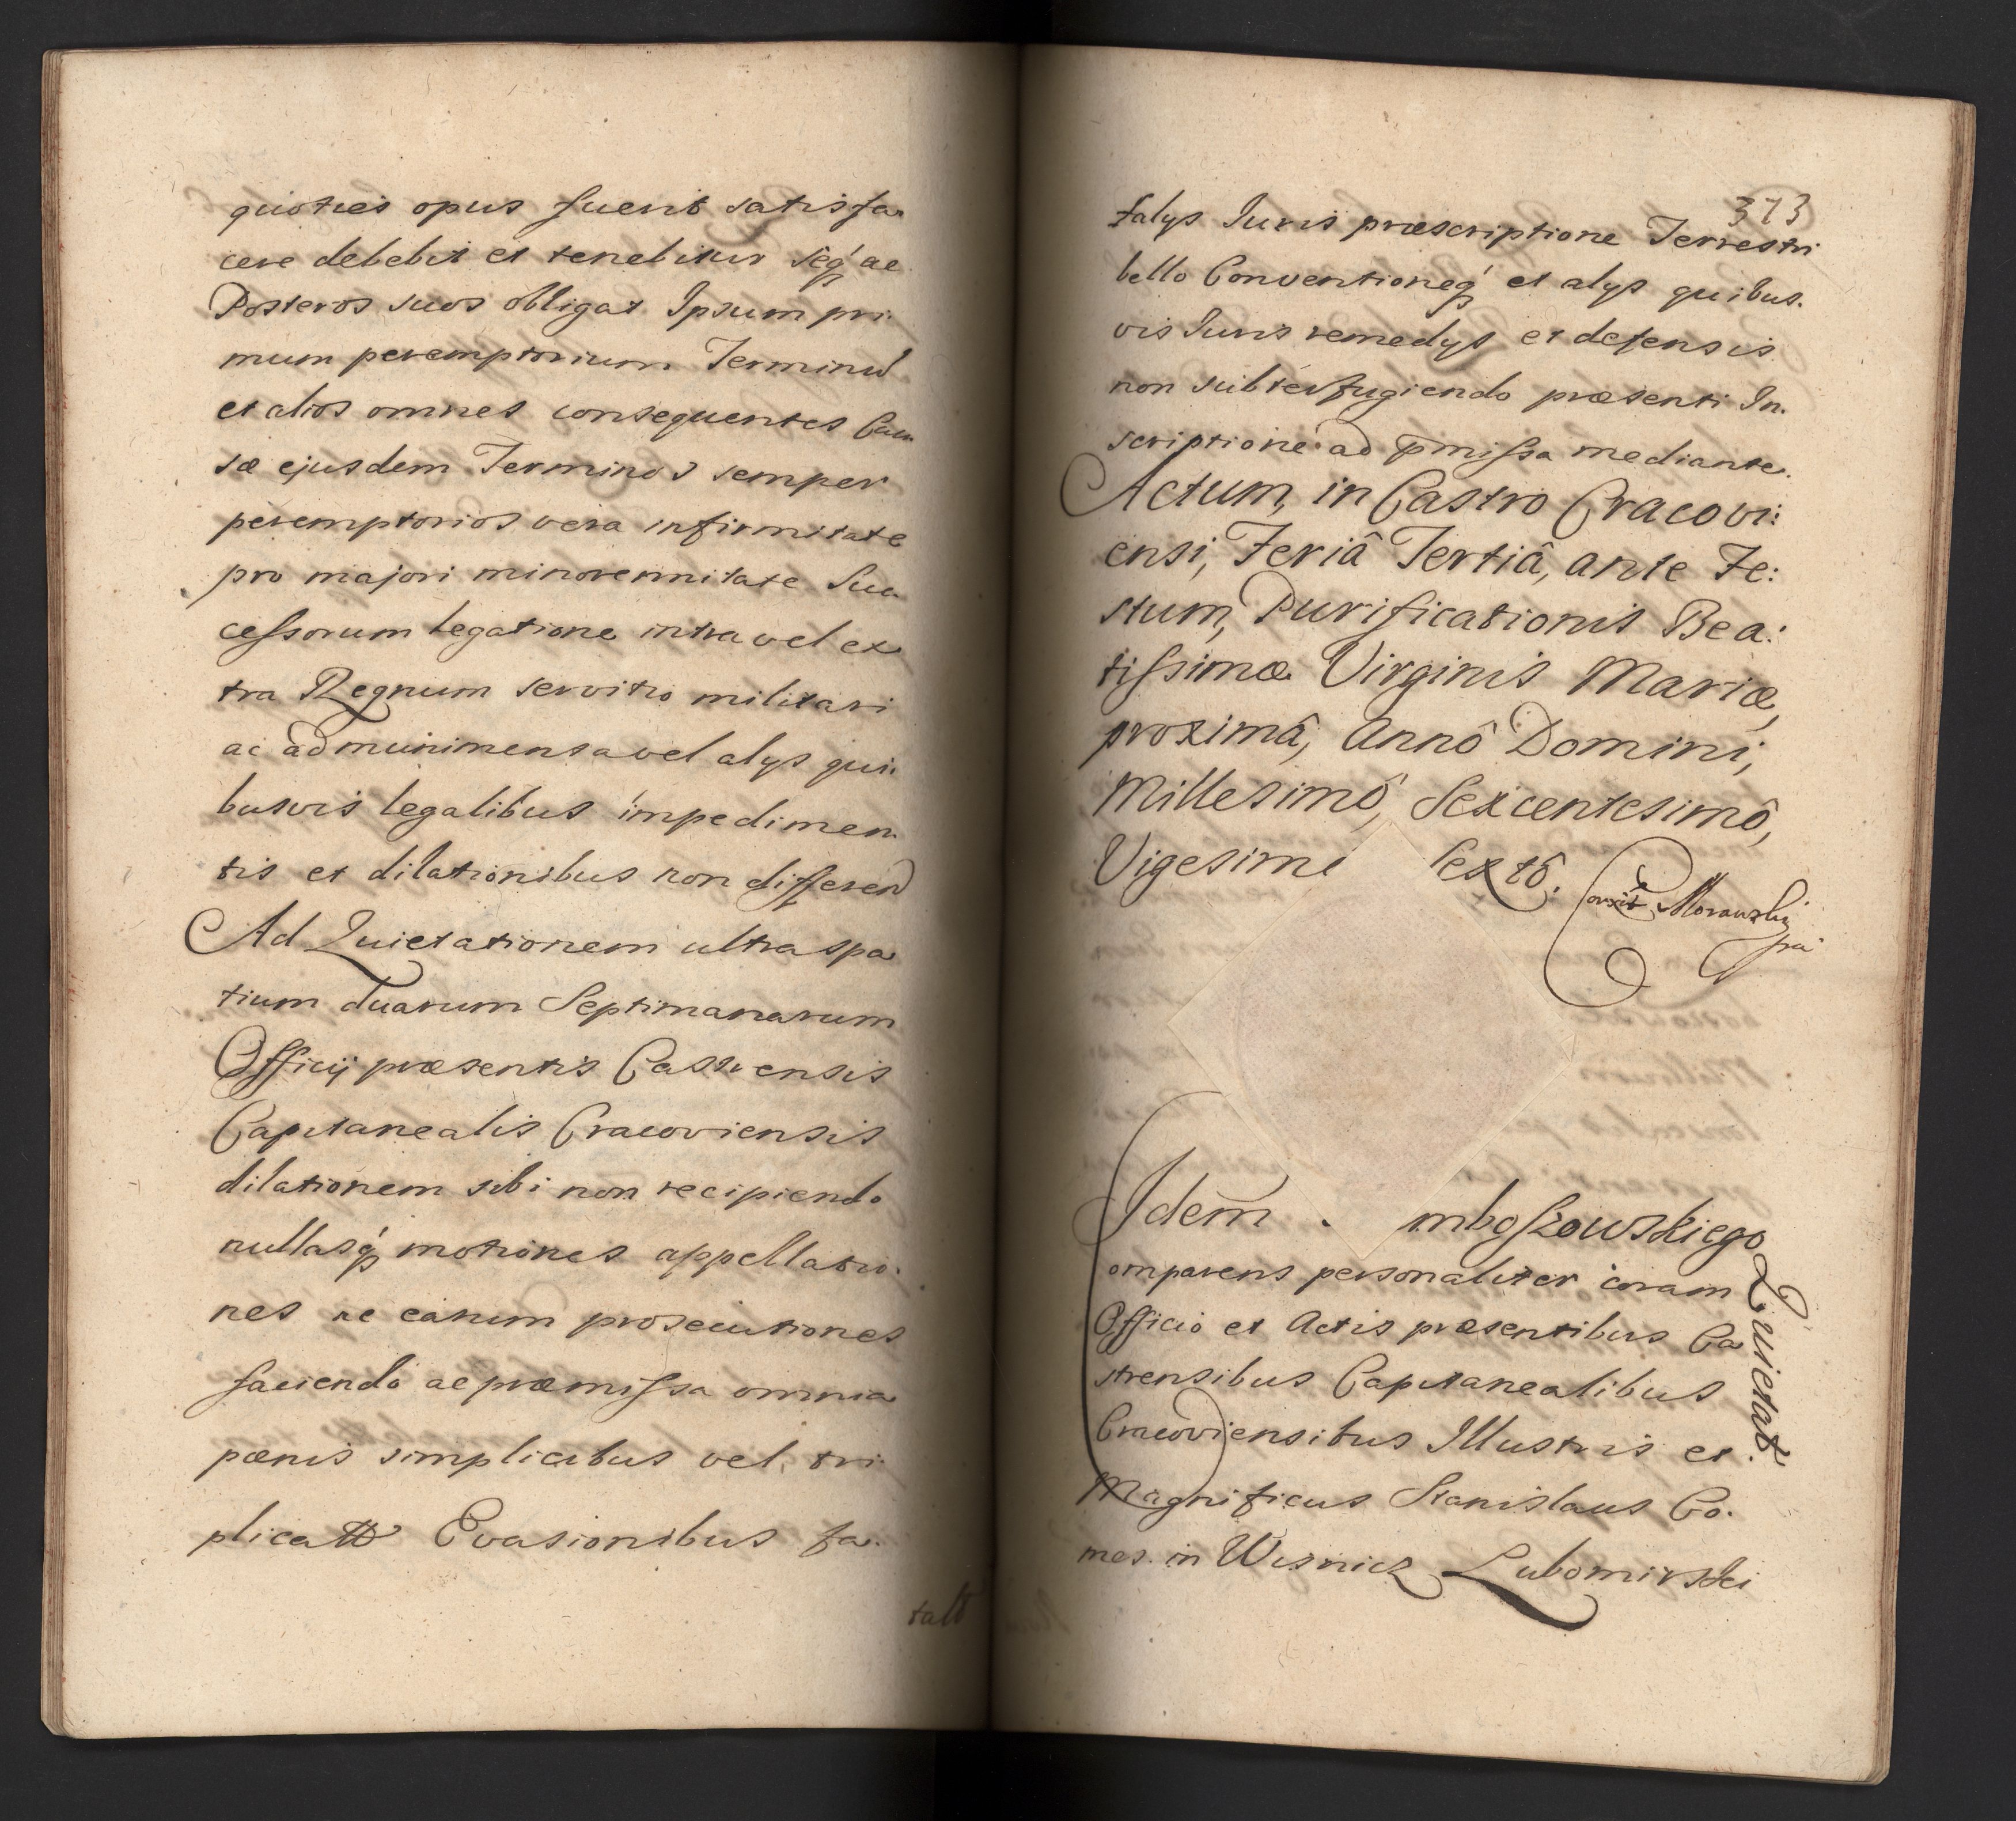 quoties opus fuerit satisfa-
cere debebit et tenebitur seq́ ac
Posteros suos obligat Ipsum pri-
mum peremptorium Terminũ
et alios omnes consequentes Cau-
sæ ejusdem Terminos semper
peremptorios vera infirmitate
pro majori minorennitate Suc-
cessorum legatione intra vel ex-
tra Regnum servitio militari
ac ad munimenta vel alys qui-
busvis legalibus impedimen-
tis et dilationibus non differen̄
Ad Quietationem ultra spa-
tium duarum Septimanarum
Officij præsentis Castrensis
Capitanealis Cracoviensis
dilationem sibi non recipiendo
nullasq́ motiones appellatio-
nes ac earum prosecutiones
faciendo ac præmissa omnia
pænis simplicibus vel tri-
Evasionibus fa-
373
talys Juris præscriptione Terrestri
bello Conventioneq́ et alys quibus-
vis Juris remedys et defensis
non subterfugiendo præsenti In-
scriptione ad p̄missa mediante.
Actum, in Castro Cracovi:
ensi, Feriâ Tertiâ, ante Fe:
stum, Purificationis Bea:
tissimæ Virginis Mariæ,
proximâ, Annô Domini,
Millesimô, Sexcentesimô,
Vigesim Sextô.
Morawsky
Idem mboszowskiego
Quietat.
omparens personaliter coram
Officio et Actis præsentibus Ca-
strensibus Capitanealibus
Cracoviensibus Illustris et
Magnificus Stanislaus Co-
mes in Wisnicz Lubomirski